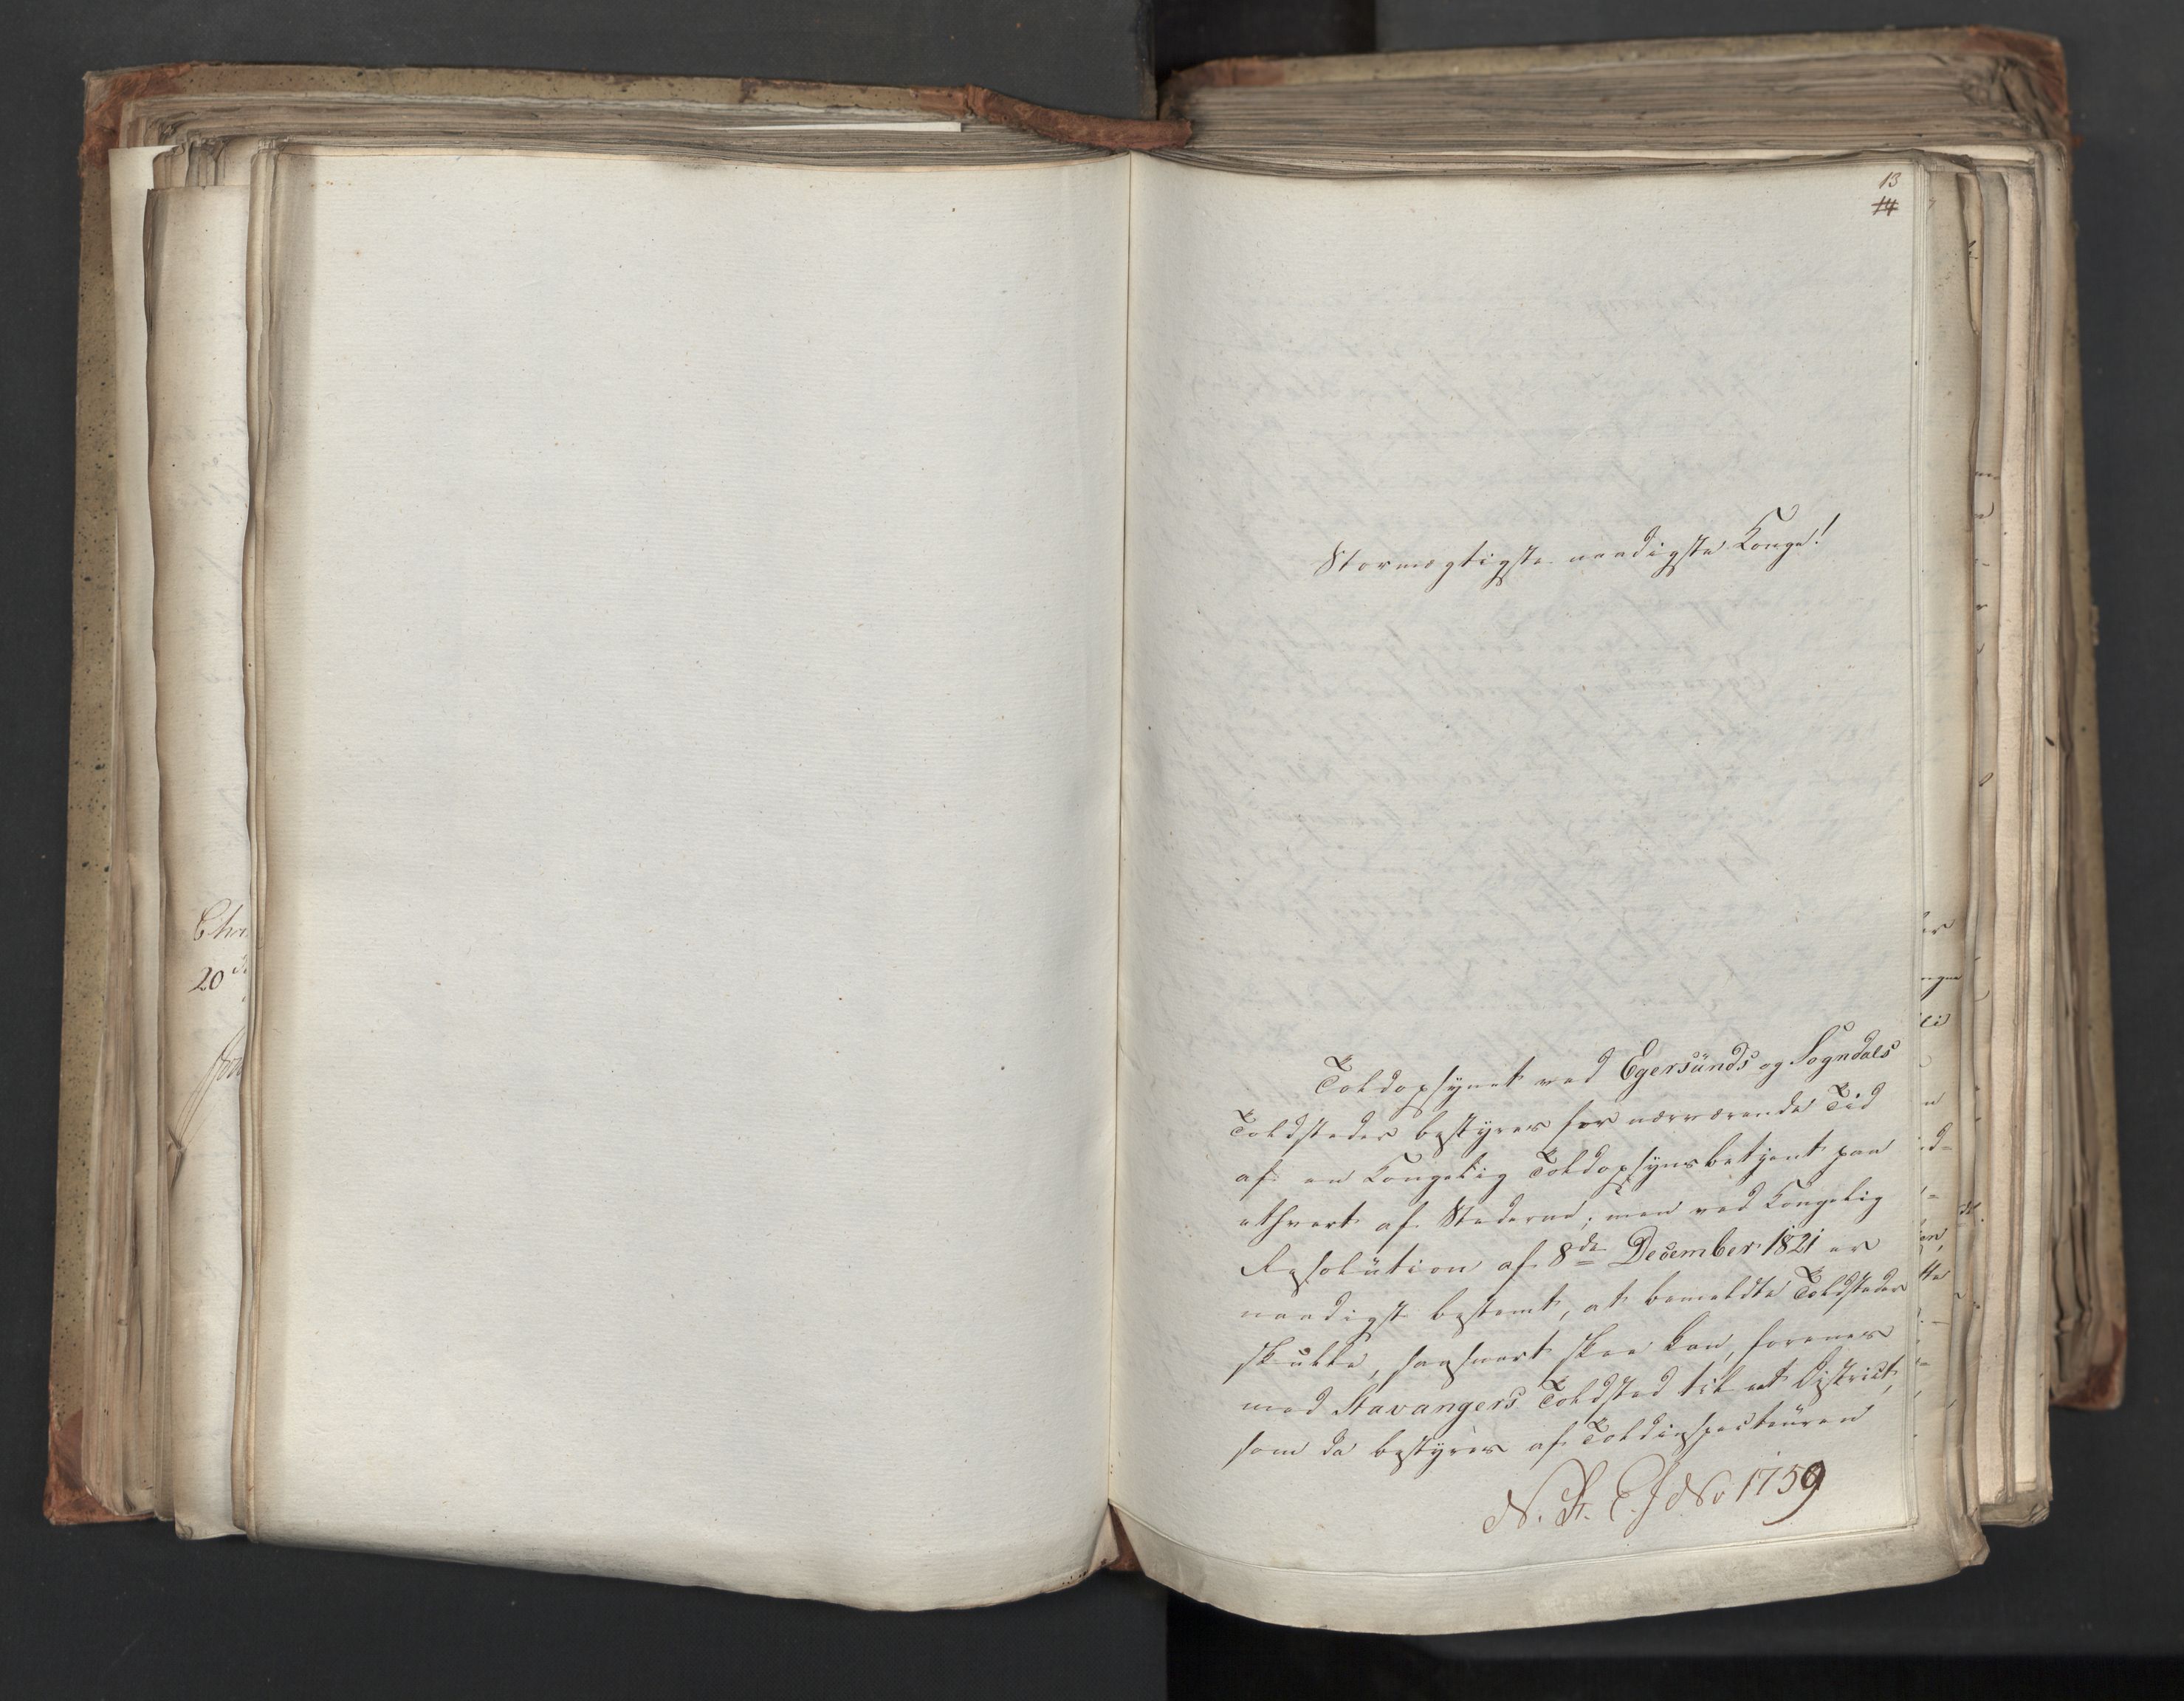 13
14
Stormægtigste naadigste Konge!
Toldopsynet ved Egersunds og Sogndals
Toldsteder bestyres for nærværende Tid
af en Kongelig Toldopsynsbetjent paa
ethvert af Stederne; men ved Kongelig
Resolution af 8de December 1821 er
naadigst bestemt, at bemeldte Toldsteder
skulle, saasnart skee kan, forenes
med Stavangers Toldsted til eet District,
som da bestyres af Toldinspecteuren
No 1759
Chri
20de